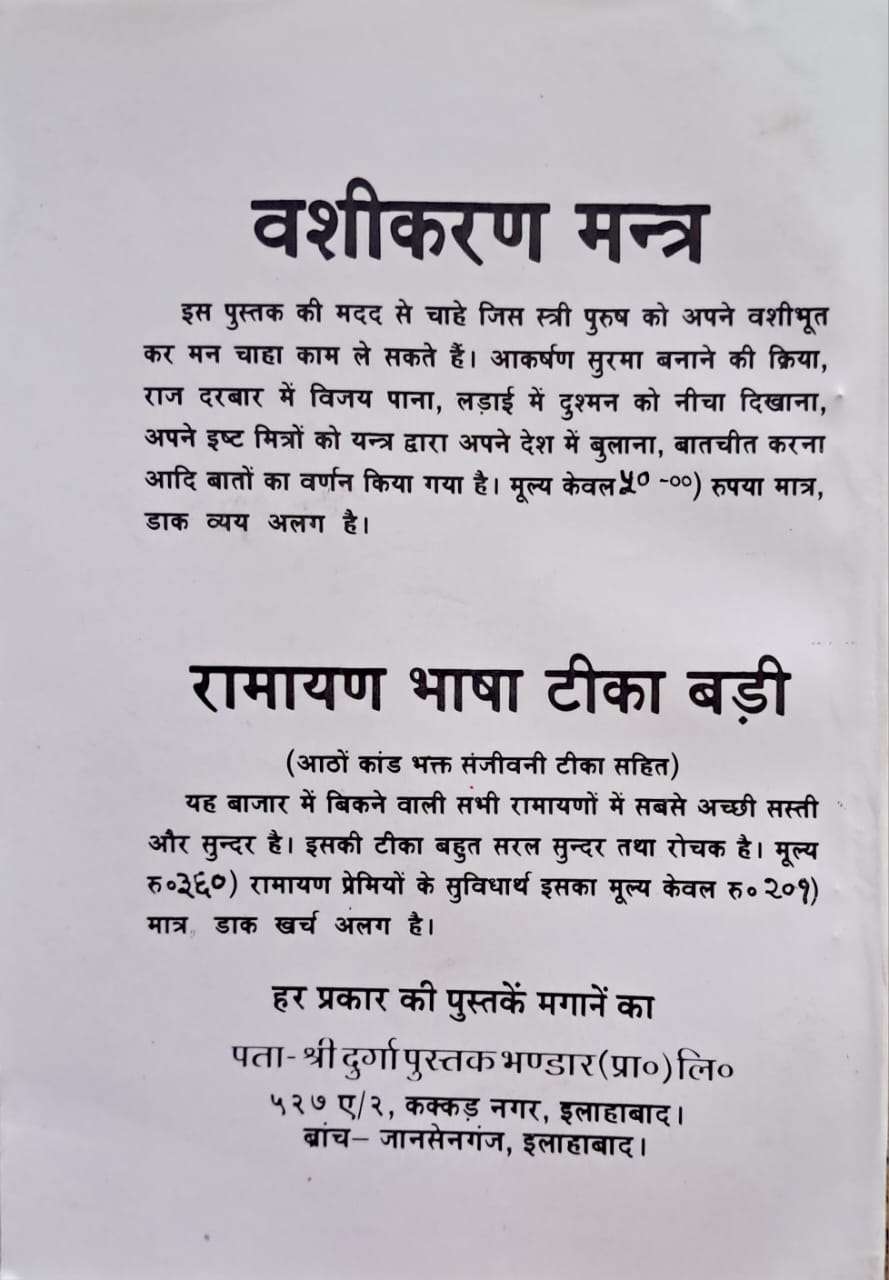 वशीकरण मन्त्र
इस पुस्तक की मदद से चाहे जिस स्त्री पुरुष को अपने वशीभूत
कर मन चाहा काम ले सकते हैं। आकर्षण सुरमा बनाने की क्रिया,
राज दरबार में विजय पाना, लड़ाई में दुश्मन को नीचा दिखाना,
अपने इष्ट मित्रों को यन्त्र द्वारा अपने देश में बुलाना, बातचीत करना
आदि बातों का वर्णन किया गया है। मूल्य केवल ५० -००) रुपया मात्र,
डाक व्यय अलग है।
रामायण भाषा टीका बड़ी
(आठों कांड भक्त संजीवनी टीका सहित)
यह बाजार में बिकने वाली सभी रामायणों में सबसे अच्छी सस्ती
और सुन्दर है। इसकी टीका बहुत सरल सुन्दर तथा रोचक है। मूल्य
रु०३६०) रामायण प्रेमियों के सुविधार्थ इसका मूल्य केवल रु० २०१)
मात्र, डाक खर्च अलग है।
हर प्रकार की पुस्तकें मगानें का
पता- श्री दुर्गा पुस्तक भण्डार (प्रा०) लि०
५२७ ए/२, कक्कड़ नगर, इलाहाबाद।
ब्रांच– जानसेनगंज, इलाहाबाद।